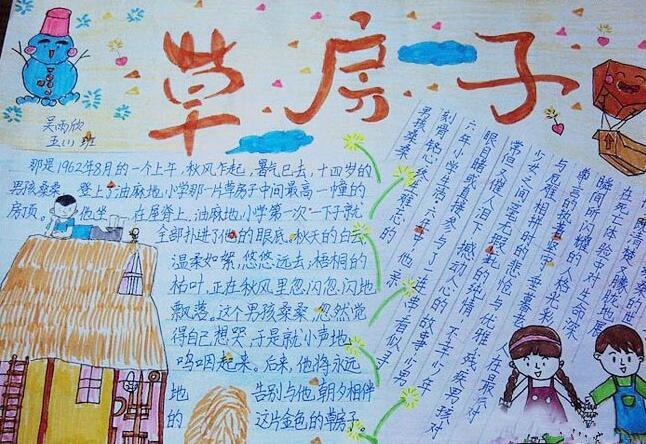 草房子
吴雨欣
五(1)班
那是1962年8月的一个上午,秋风乍起,暑气已去,十四岁的
男孩桑桑,登上了油麻地小学那一片草房子中间最高一幢的
房顶。他坐在屋脊上,油麻地小学第一次一下子就
全部扑进了他的眼底。秋天的白云
温柔如絮,悠悠远去;梧桐的
枯叶,正在秋风里忽闪忽闪地
飘落。这个男孩桑桑,忽然觉
得自己想哭,于是就小声地
呜咽起来。后来,他将永远
地告别与他朝夕相伴
的这片金色的草房子。
男孩桑桑
刻骨铭心,终身难忘的
六年小学生活。六年中,他亲
眼目睹或直接参与了一连串看似寻
常但又催人泪下、撼动人心的故事:少男
少女之间毫无瑕疵的纯情,不幸少年
与厄难相拼时的悲怆与优雅,残疾男孩对
尊严的执著坚守
瞬间所闪耀的人格光彩
在死亡体验中对生命的深